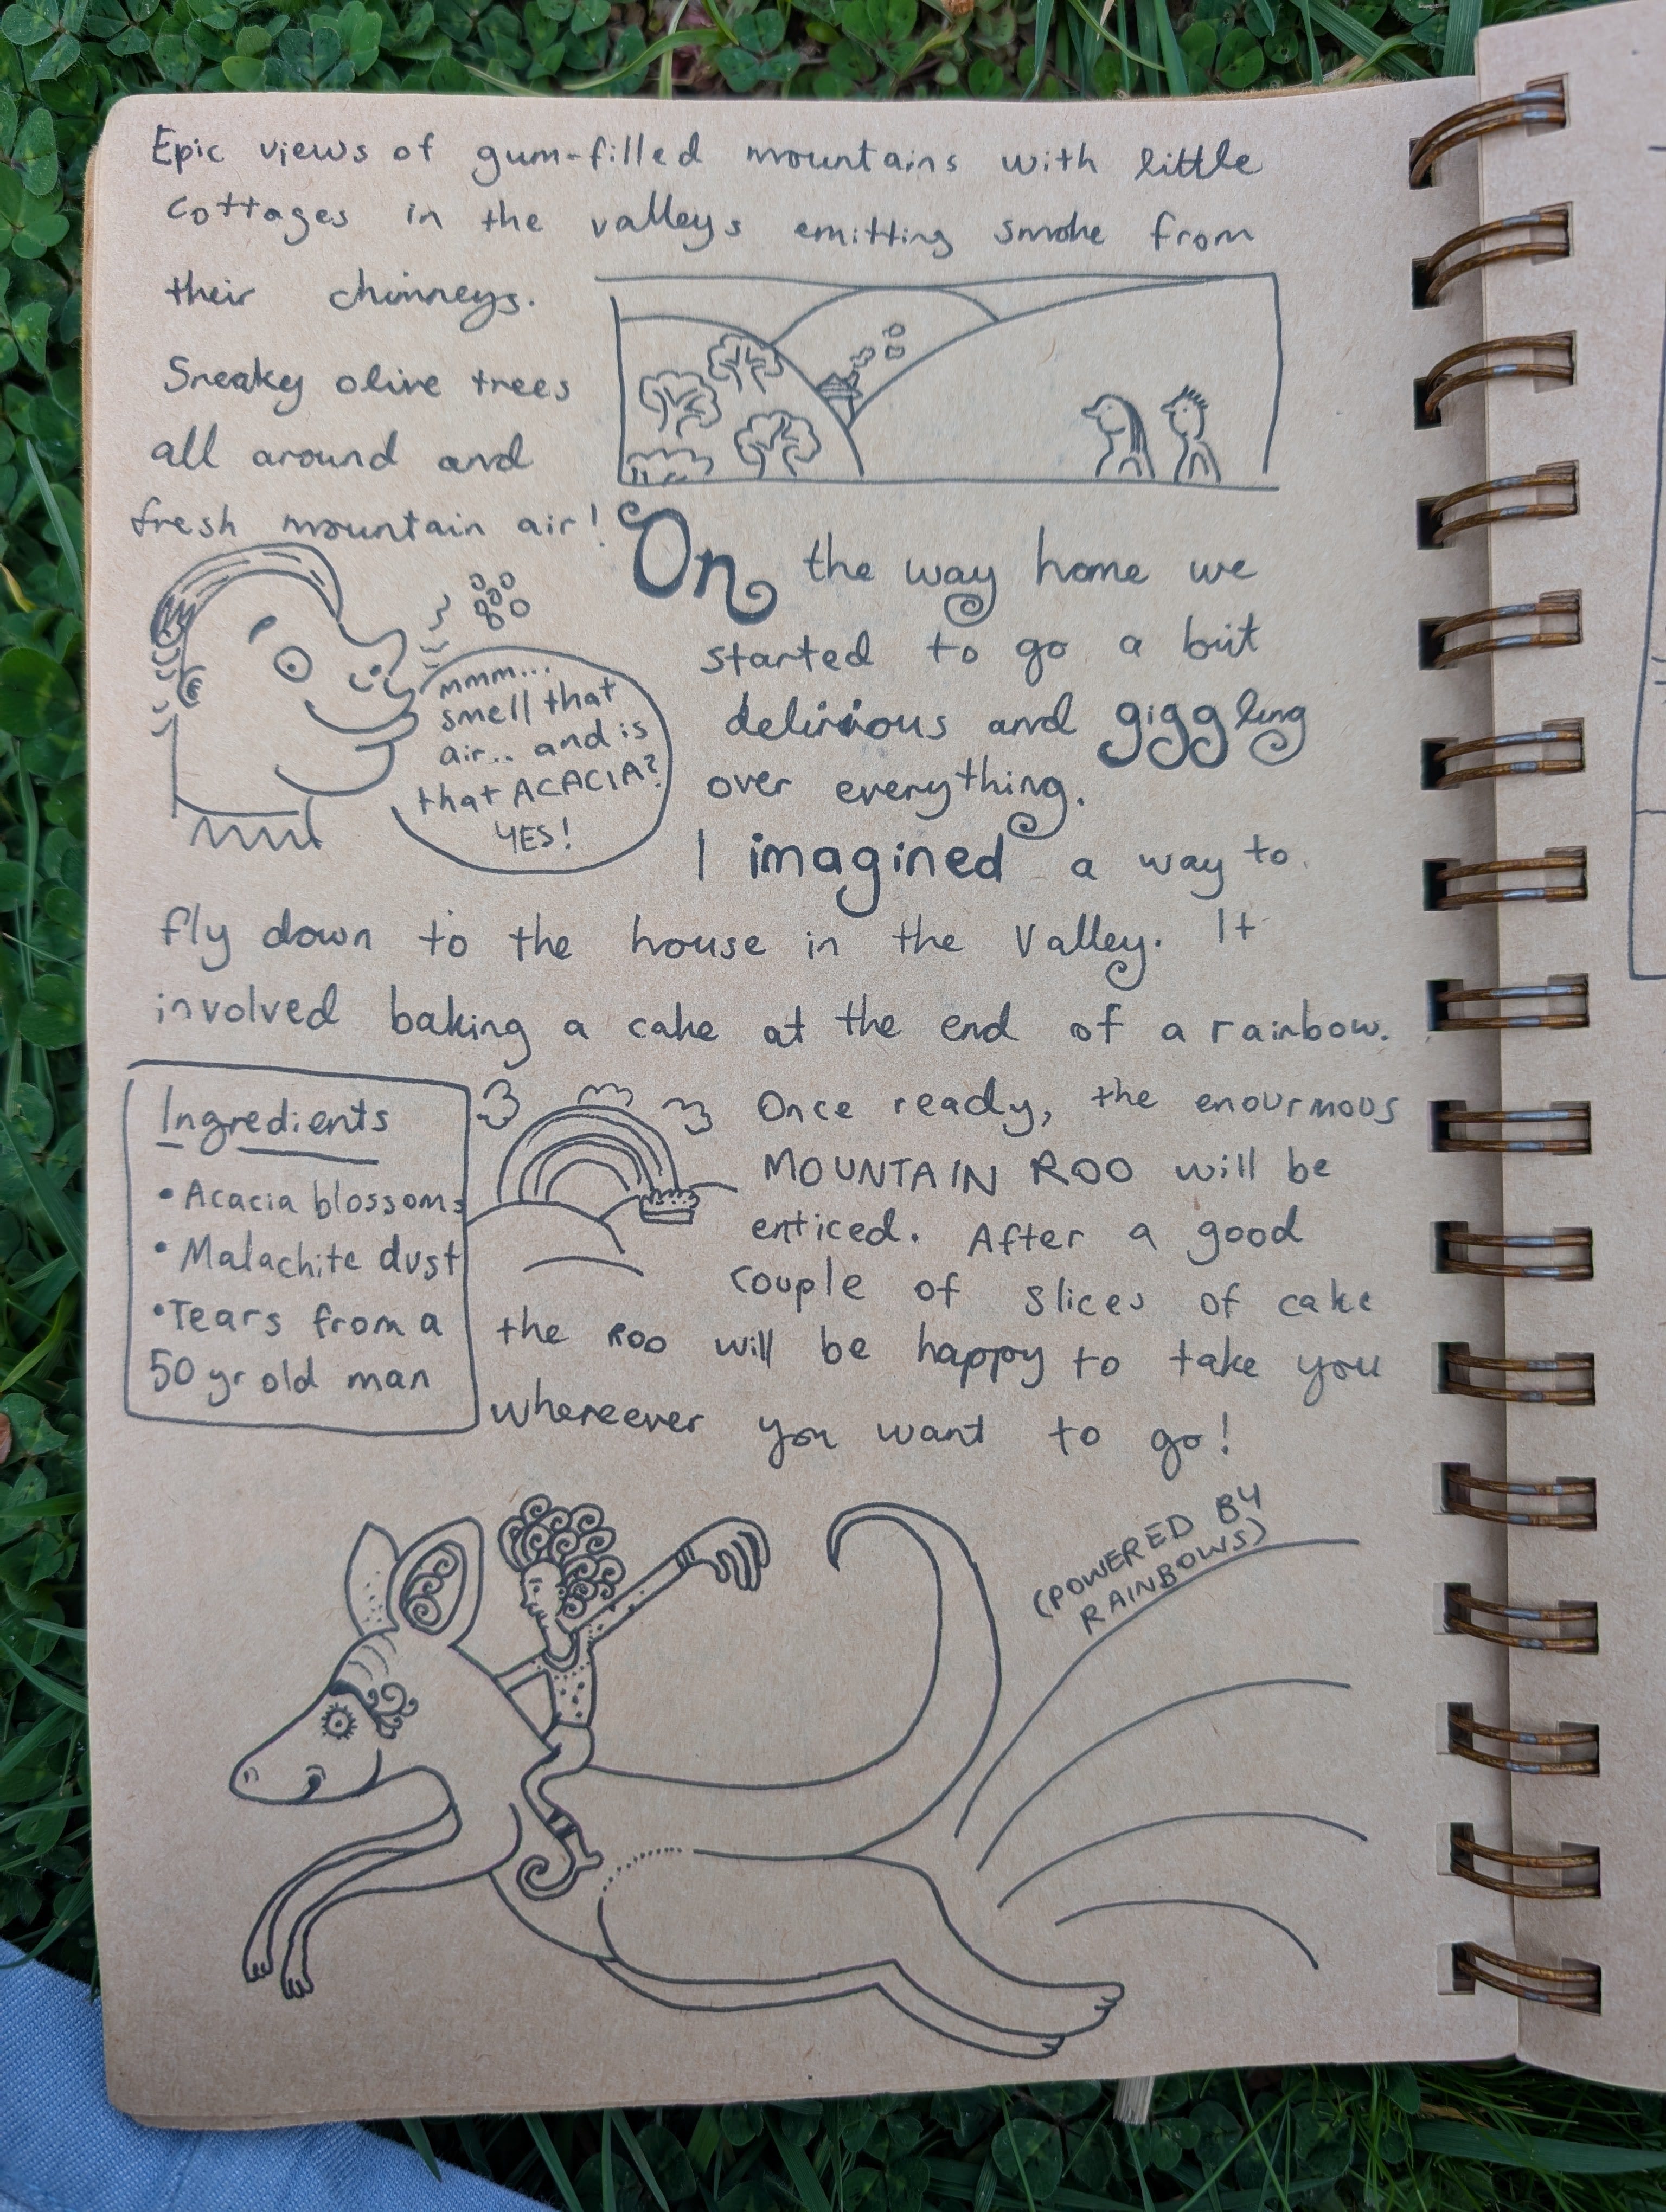 Epic views of gum-filled mountains with little
cottages in the valleys emitting smoke from
their chimneys.
Sneaky olive trees
all around and
fresh mountain air!
mmm...
smell that
air.. and is
that ACACIA?
YES!
On the way home we
started to go a bit
delirious and giggling
over everything.
I imagined a way to
fly down to the house in the Valley. It
involved baking a cake at the end of a rainbow.
Ingredients
• Acacia blossoms
• Malachite dust
• Tears from a
50 yr old man
Once ready, the enourmous
MOUNTAIN ROO will be
enticed. After a good
couple of slices of cake
the ROO will be happy to take you
whereever you want to go!
(POWERED BY
RAINBOWS)